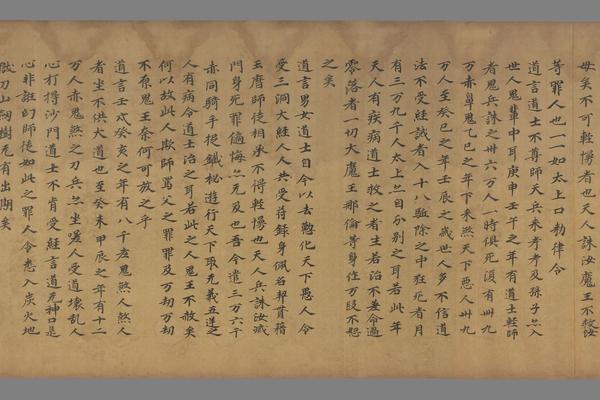 毋矣不可輕慢者也天人誅汝魔王不救汝
等罪人也一一如太上口勅律令
道言道士不尊師天兵来考考及孫子炁入
世人鬼輩中耳庚申壬午之年有道士輕師
者鬼兵誅之卅六万人一時俱死須有卅九
万赤鼻鬼乙巳之年下来煞天下惡人卅九
万人至癸巳之年壬辰之歲世人多不信道
法不受經誡者入十八
有三万九千人太上炁自分別之耳若此年
天人有疾病道士救之者生若治不差命過
零落者一切大魔王那倫等身
之矣
道言男女道士自今以去勸化天下愚人令
受三洞大經人人共受苻錄身佩名
玉曆師徒相承不得輕慢也天人兵誅汝滅
門身死罪
赤同騎手捉鐵 遊行天下取无義五逆之
人有病令道士治之耳若此之人鬼王不赦矣
何以故此人欺師罵父之罪罪及万劫万劫
不原鬼王奈何可放之乎
道言壬戌癸亥之年有八千 鬼煞人煞人
者坐不供大道也至癸未甲辰之年有十二
万人赤鬼煞之刀兵炁坐嗔人受道壞乱人
心打搏沙門道士不肯受經言道无神口是
心非誑 師徒如此之罪人令悉入炭火地
獄刀山劒樹无有出期矣